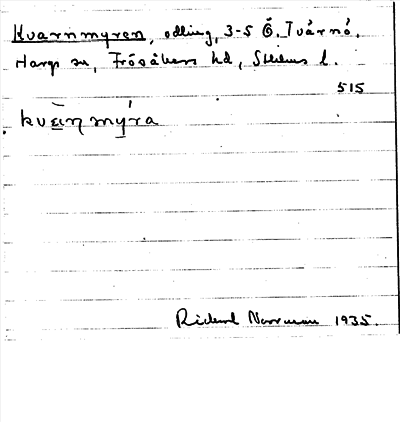 Kvarnmyren, odling, 3-5 Ö. Tvärnö.
Hargs sn, Frösåkers hd, Sthlms l.
515
kvȁɳmy̌ra
Rickard Norrman 1935.